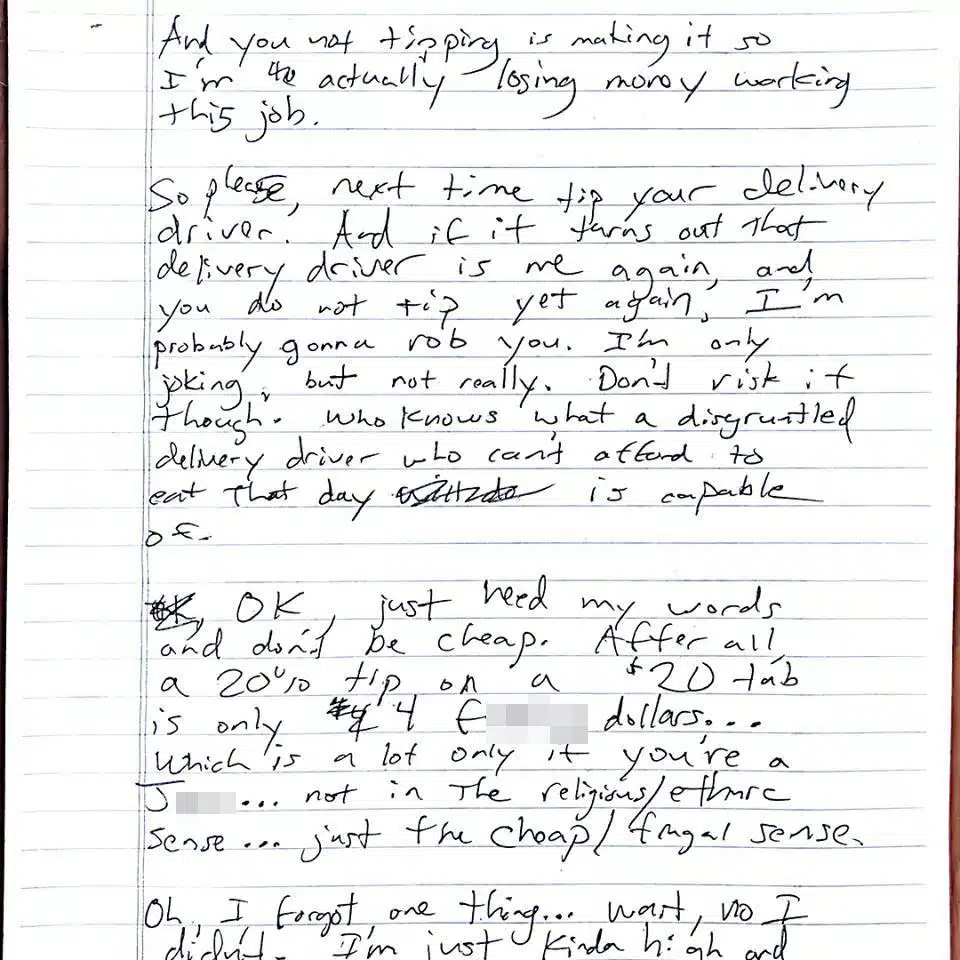 And you not tipping is making it so
I'm actually losing money working
this job.
So please, next time tip your delivery
driver. And if it turns out that
delivery driver is me again, and
you do not tip yet again, I'm
probably gonna rob you. I'm only
joking, but not really. Don't risk it
though. Who knows what a disgruntled
delivery driver who can't afford to
eat that day is capable
of.
OK, just heed my words
and don't be cheap. After all
a 20% tip on a $20 tab
is only 4 dollars...
which is a lot only if you're a
J... not in the religious/ethnic
sense... just the cheap/frugal sense.
Oh, I forgot one thing... wait, no I
didn't. I'm just kinda high and